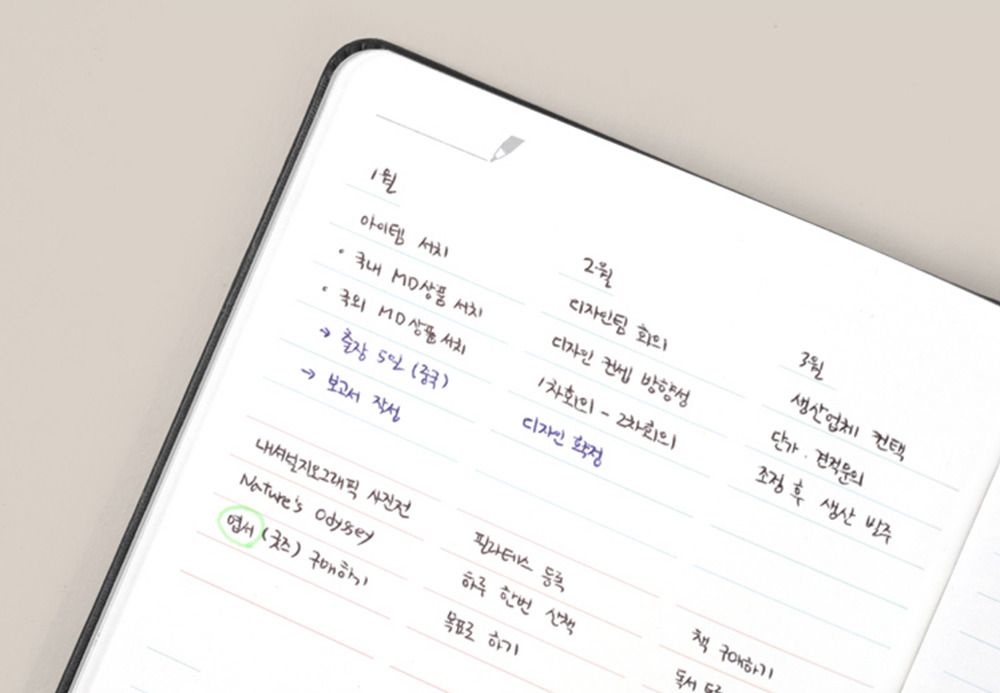 1월
아이템 서치
• 국내 MD상품 서치
• 국외 MD상품 서치
→ 출장 5일 (중국)
→ 보고서 작성
내셔널지오그래픽 사진전
Nature's Odyssey
엽서 (굿즈) 구매하기
2월
디자인팀 회의
디자인 컨셉 방향성
1차회의 - 2차회의
디자인 확정
필라테스 등록
하루 한번 산책
목표로 하기
3월
생산업체 컨택
단가 · 견적문의
조정 후 생산 발주
책 구매하기
독서